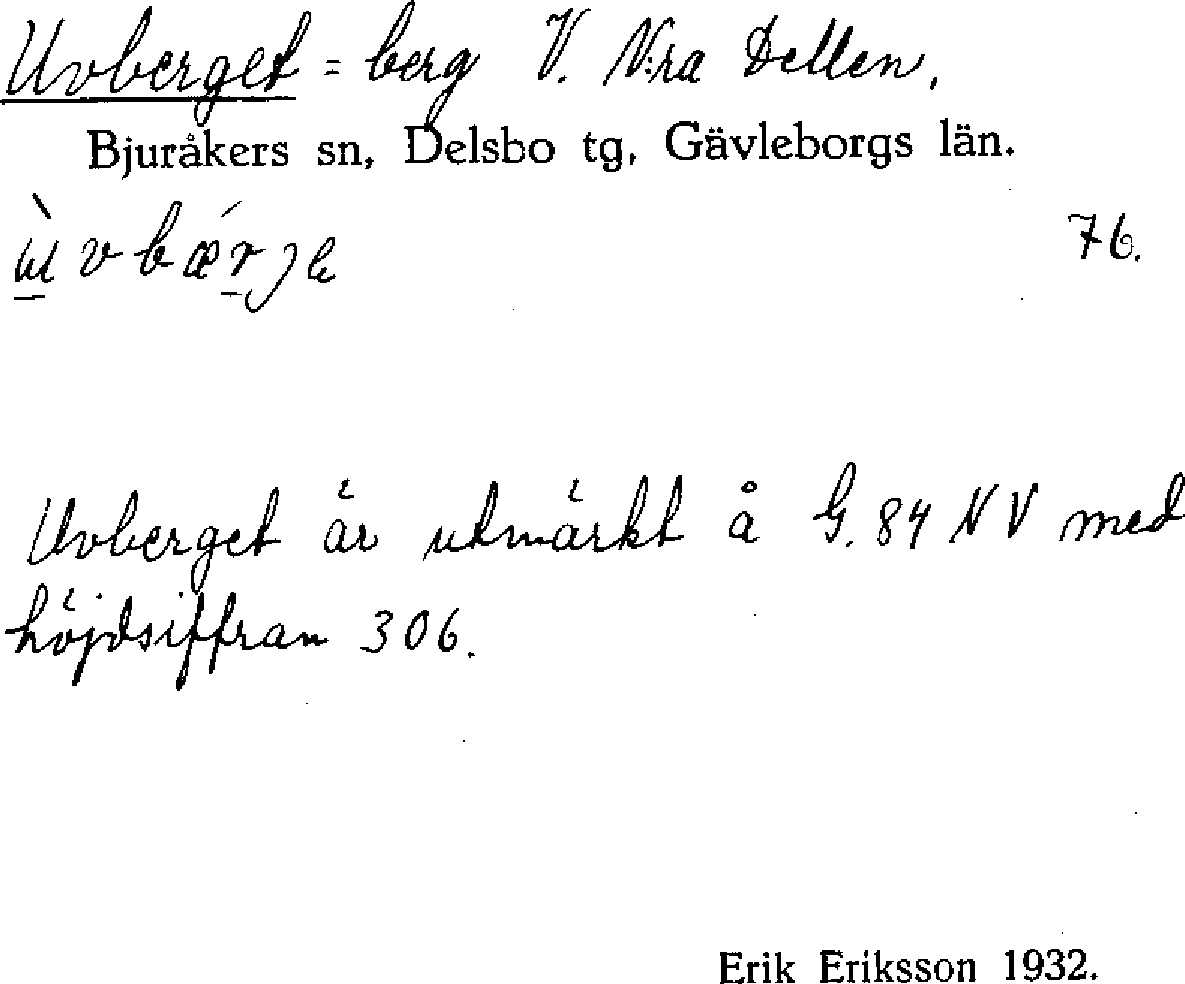 Uvberget = berg V. N:ra Dellen,
Bjuråkers sn, Delsbo tg, Gävleborgs län.
76.
Uvberget är utmärkt å G. 84 NV med
höjdsiffran 306.
Erik Eriksson 1932.